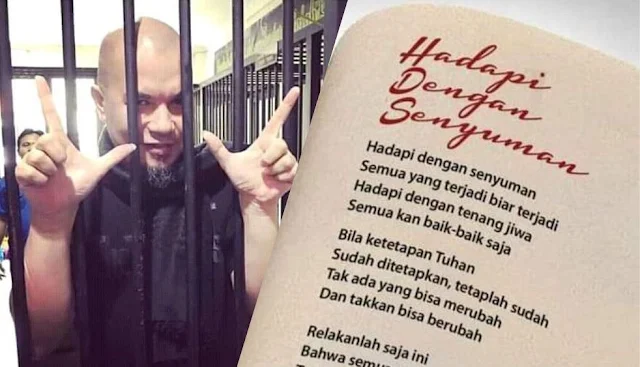 Hadapi
Dengan
Senyuman
Hadapi dengan senyuman
Semua yang terjadi biar terjadi
Hadapi dengan tenang jiwa
Semua kan baik-baik saja
Bila ketetapan Tuhan
Sudah ditetapkan, tetaplah sudah
Tak ada yang bisa merubah
Dan takkan bisa berubah
Relakanlah saja ini
Bahwa